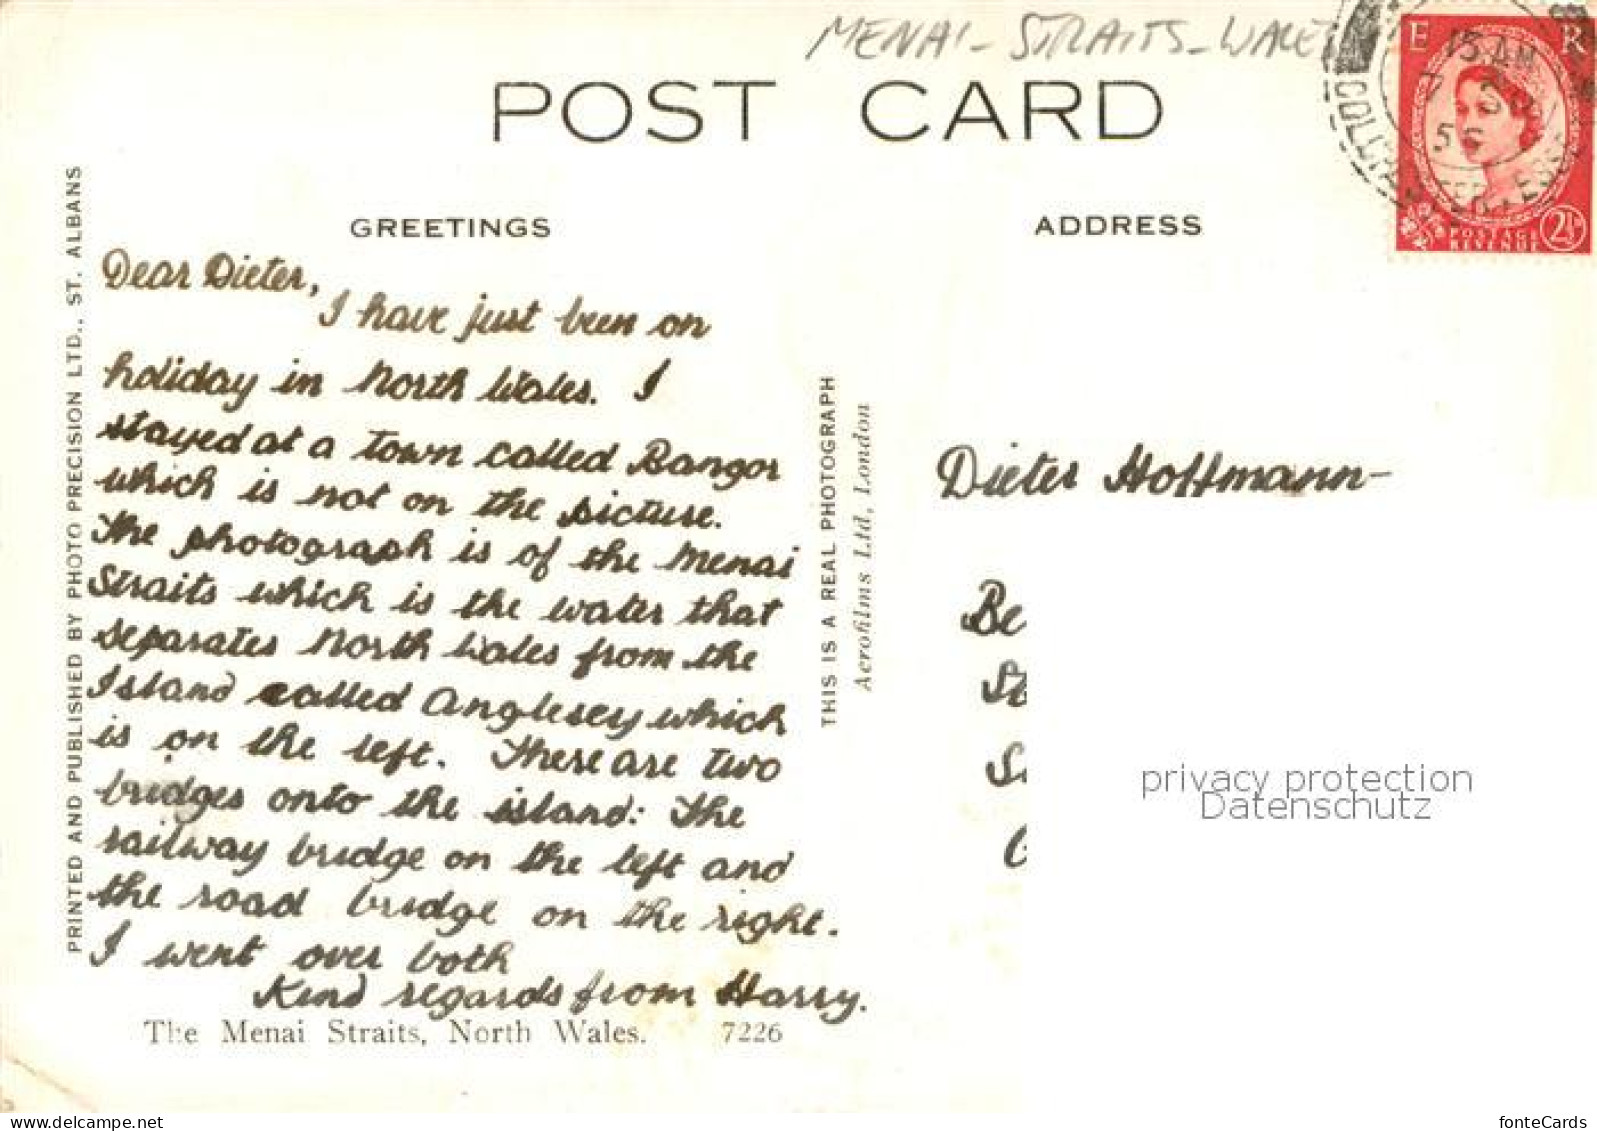 MENAI - STRAITS - WALES
POST CARD
E R
15 AM
COLCHESTER ESSEX
POSTAGE
REVENUE
2½D
GREETINGS
ADDRESS
Dear Dieter,
I have just been on
holiday in North Wales. I
stayed at a town called Bangor
which is not on the picture.
The photograph is of the Menai
Straits which is the water that
separates North Wales from the
Island called Anglesey which
is on the left. There are two
bridges onto the island: The
railway bridge on the left and
the road bridge on the right.
I went over both
Kind regards from Harry.
The Menai Straits, North Wales. 7226
PRINTED AND PUBLISHED BY PHOTO PRECISION LTD., ST. ALBANS
THIS IS A REAL PHOTOGRAPH
Aerofilms Ltd, London
Dieter Hoffmann-
Be
privacy protection
Datenschutz
fonteCards